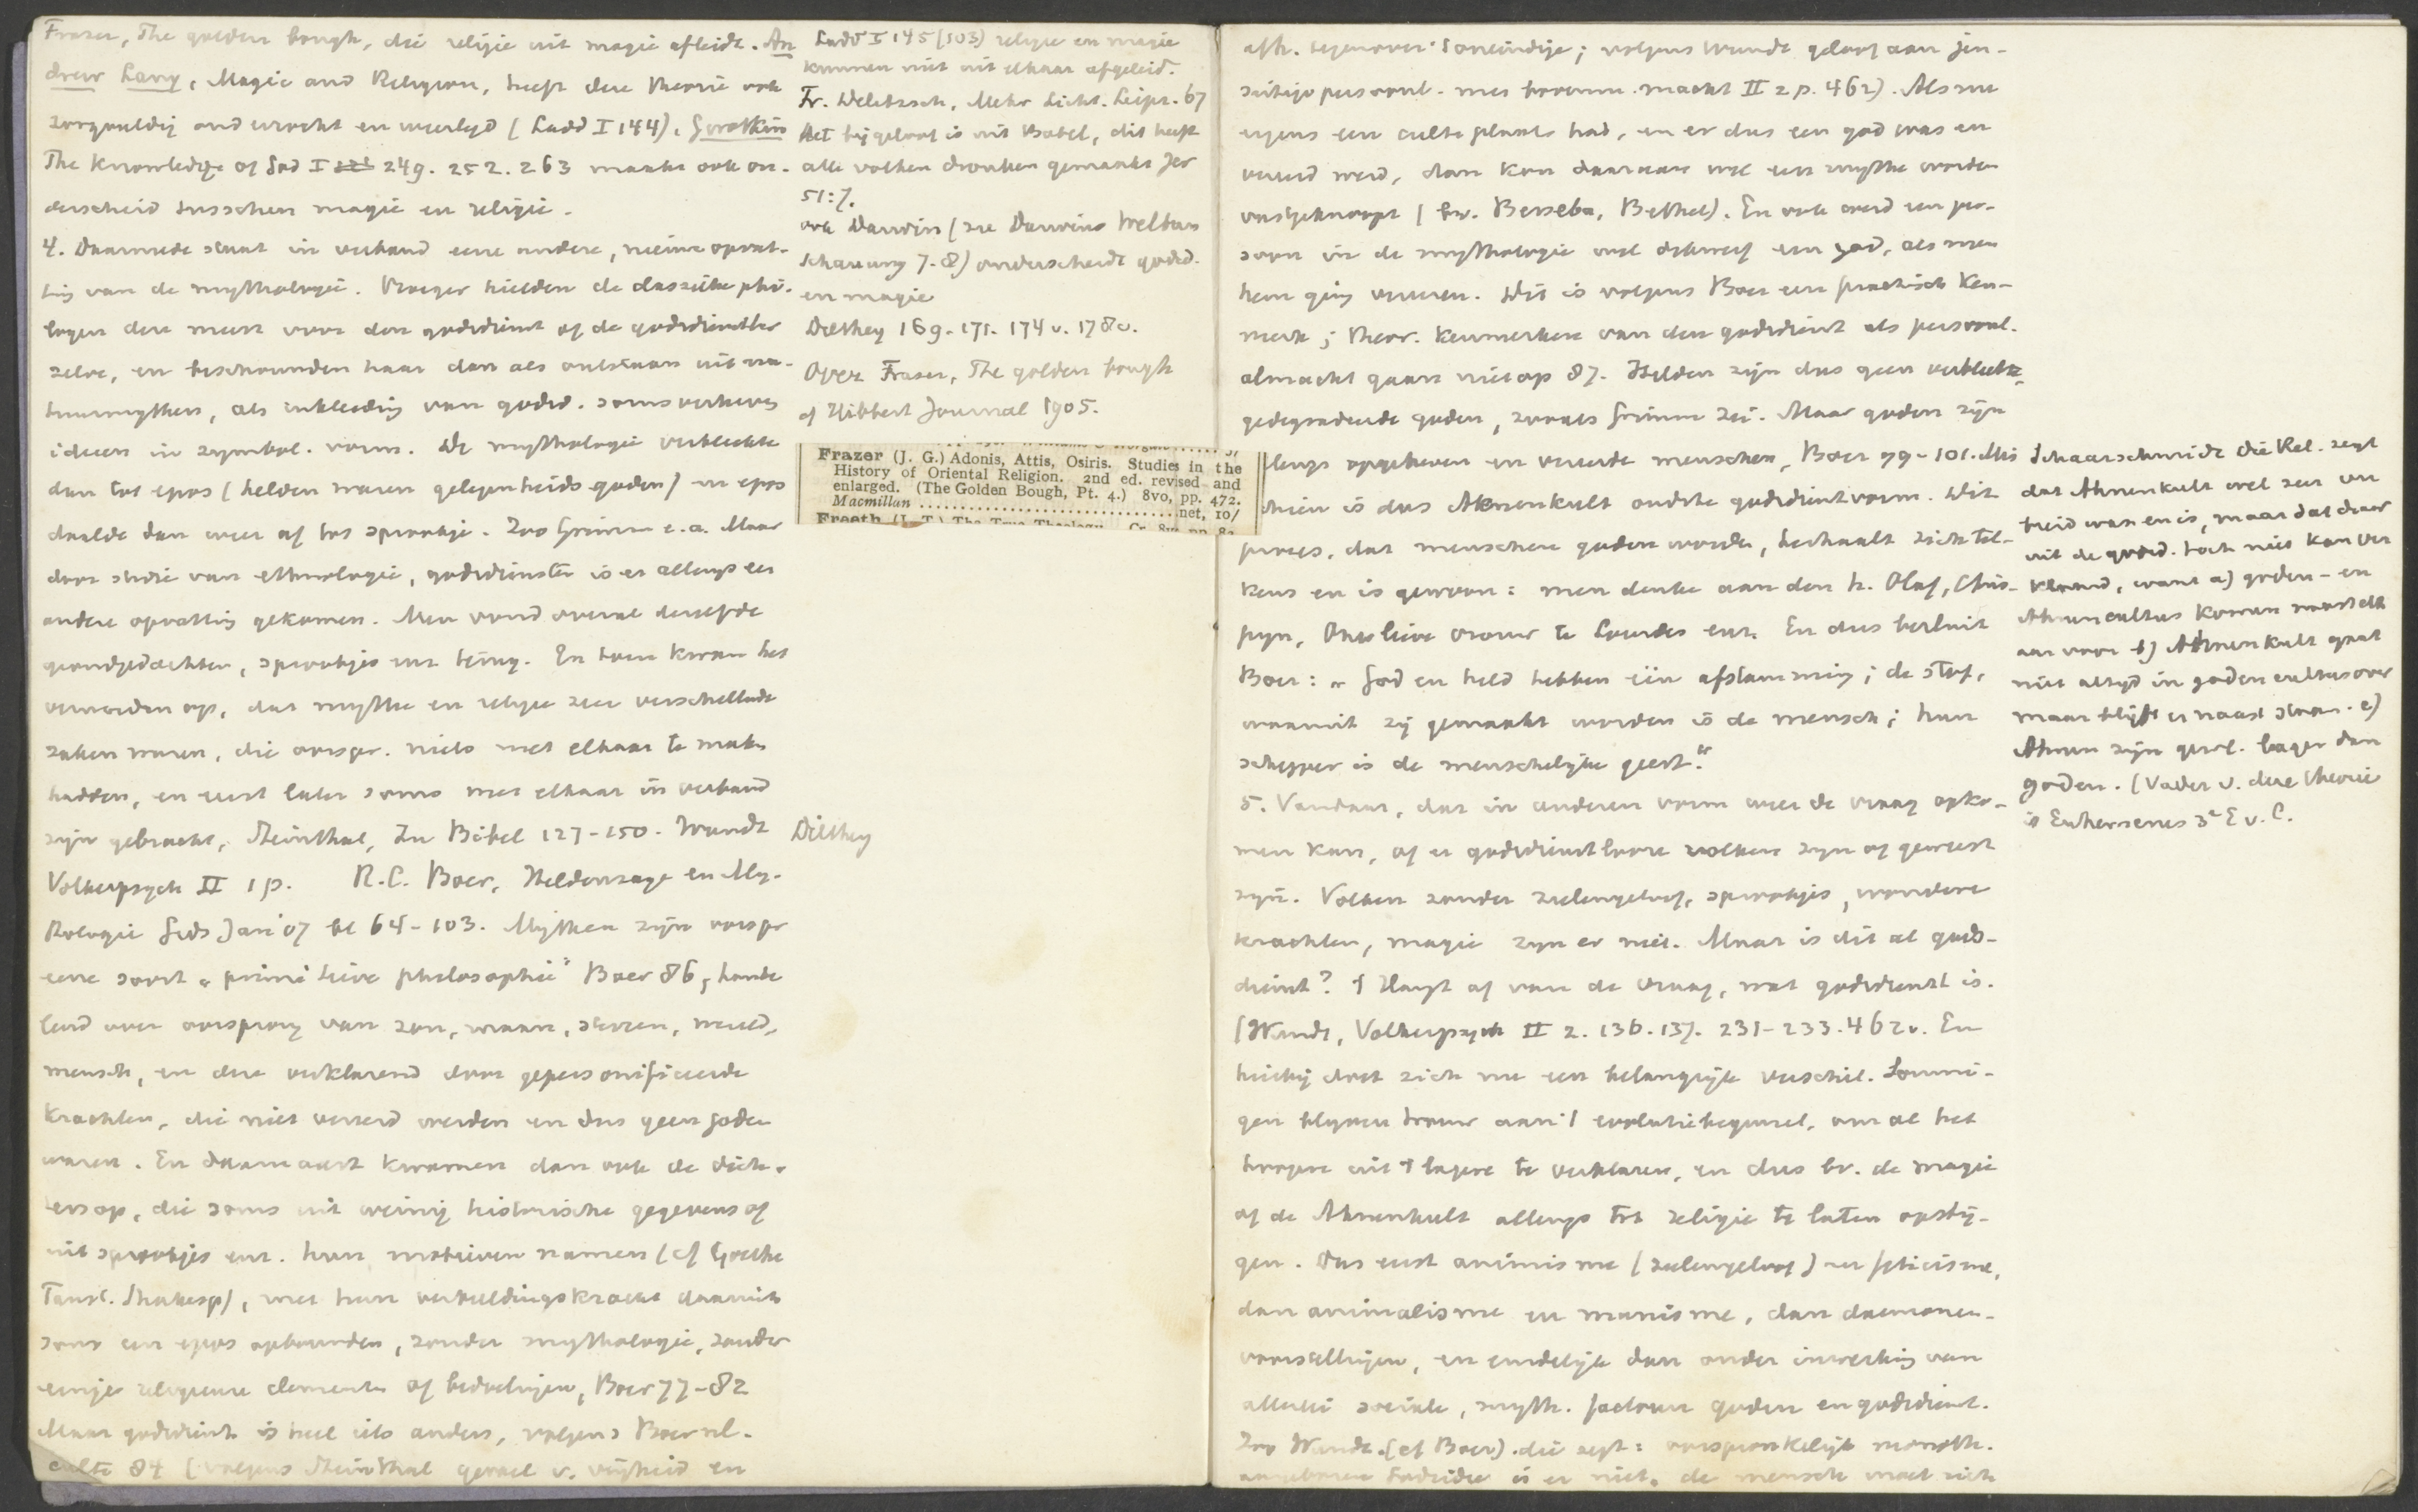 Frazer, The golden bough, die religie uit magie afleidt. An
drew Lang, Magic and Religion, heeft deze theorie ook
zorgvuldig onderzocht en weerlegd (Ladd I 144).
The Knowledge of God I 249. 252. 263 maakt ook on-
derscheid tusschen magie en religie.
4. Daarmede staat in verband eene andere, nieuwe opvat-
ting van de mythologie. Vroeger hielden de classieke philo-
logen deze meest voor den godsdienst of de godsdienstleer
zelve, en beschouwden haar dan als ontstaan uit na-
tuurmythen, als inkleeding van godsd. soms verheven
ideeen in symbol. vorm. De mythologie verbleekte
dan tot epos (helden waren gelegenheids-goden) en epos
daalde dan weer af tot sprookje. Zoo Grimm e.a. Maar
door studie van ethnologie, godsdiensten is er allengs een
andere opvatting gekomen. Men vond overal dezelfde
grondgedachten, sprookjes enz. terug. En toen kwam het
vermoeden op, dat mythe en religie zeer verschillende
zaken waren, die oorspr. niets met elkaar te maken
hadden, en eerst later soms met elkaar in verband
zijn gebracht, Steinthal, Zu Bibel 127-150. Wundt
Volkerpsych II 1 p. R.C. Boer, Heldensage en My-
thologie Gids Jan '07 bl 64-103. Mythen zijn oorspr
eene soort „primitieve philosophie" Boer 86, hande
lend over oorsprong van zon, maan, sterren, wereld,
mensch, en deze verklarend door gepersonificeerde
krachten, die niet vereerd werden en dus geen goden
waren. En daarnaast kwamen dan ook de dich-
ters op, die soms uit weinig historische gegevens of
uit sprookjes enz. hun motieven namen (cf Goethe
Faust. Shakesp), met hun verbeeldingskracht daaruit
soms een epos opbouwden, zonder mythologie, zonder
eenige religieuze elementen of bedoelingen, Boer 77-82
Maar godsdienst is heel iets anders, volgens Boer nl.
culte 84 (volgens Steinthal gevoel v. vrijheid en
Ladd I 145 (103) religie en magie
kunnen niet uit elkaar afgeleid.
Fr. Delitzsch, Mehr Licht. Leipz. 67
Het bijgeloof is uit Babel, dit heeft
alle volken dronken gemaakt Jer
51:7.
ook Darwin (zie Darwins Weltan
schauung 7-8) onderscheidt godsd.
en magie
Dilthey 169. 171. 174 v. 178 v.
Over Frazer, The golden bough
cf Hibbert Journal 1905.
Frazer (J. G.) Adonis, Attis, Osiris. Studies in the
History of Oriental Religion. 2nd ed. revised and
enlarged. (The Golden Bough, Pt. 4.) 8vo, pp. 472.
Macmillan ................................net, 10/
Freeth (J. T.) The True Theology. Cr. 8vo, pp. 82
Dilthey
afh. tegenover 't oneindige; volgens Wundt geloof aan
persoonl. macht II 2 p. 462). Als men
ergens een culte plaats had, en er dus een god was en
vereerd werd, dan kon daaraan wel een mythe worden
vastgeknoopt (bv. Berseba, Bethel). En ook werd een per-
soon in de mythologie wel een god, als men
hem ging vereeren. Dit is volgens Boer een practisch ken-
merk; theor. kenmerken van den godsdienst als persoonl.
almacht gaan niet op 87. Helden zijn dus geen verbleekte,
gedegradeerde goden, zooals Grimm zei. Maar goden zijn
allengs opgeheven en vereerde menschen, Boer 79-101. Mis
schien is dus Ahnenkult oudste godsdienstvorm. Dit
proces, dat menschen goden worden, herhaalt zich tel-
kens en is gewoon: men denke aan den h. Olaf, Chris-
pijn, Onze lieve vrouw te Lourdes enz. En dus besluit
Boer: „God en held hebben één afstamming; de stof,
waaruit zij gemaakt worden is de mensch; hun
schepper is de menschelijke geest."
5. Vandaar, dat in anderen vorm weer de vraag opko-
men kan, of er godsdienstlooze volken zijn of geweest
zijn. Volken zonder zielengeloof, sprookjes, wondere
krachten, magie zijn er niet. Maar is dit al gods-
dienst? 't Hangt af van de vraag, wat godsdienst is.
(Wundt, Volkerpsych II 2. 136. 137. 231-233. 462 v. En
hierbij doet zich nu een belangrijk verschil. Sommi-
gen blijven trouw aan 't evolutiebeginsel, om al het
hoogere uit 't lagere te verklaren, en dus bv. de magie
of de Ahnenkult allengs tot religie te laten opstij-
gen. Dus eerst animisme (zielengeloof) en feticisme,
dan animalisme en manisme, dan daemonen-
voorstellingen, en eindelijk dan onder inwerking van
allerlei sociale, myth. factoren goden en godsdienst.
Zoo Wundt. (cf Boer). die zegt: oorspronkelijk monoth.
aangeboren Godsidee is er niet, de mensch moet zich
Schaarschmidt Die Rel. zegt
dat Ahnenkult wel zeer ver
breid was en is, maar dat daar
uit de godsd. toch niet kan ver
klaard, want a) goden- en
Ahnencultus komen naast elk
aar voor b) Ahnenkult gaat
niet altijd in godencultus over
maar blijft er naast staan. c)
Ahnen zijn gewl. lager dan
goden. (Vader v. deze theorie
is Euhemerus 3e E v. C.